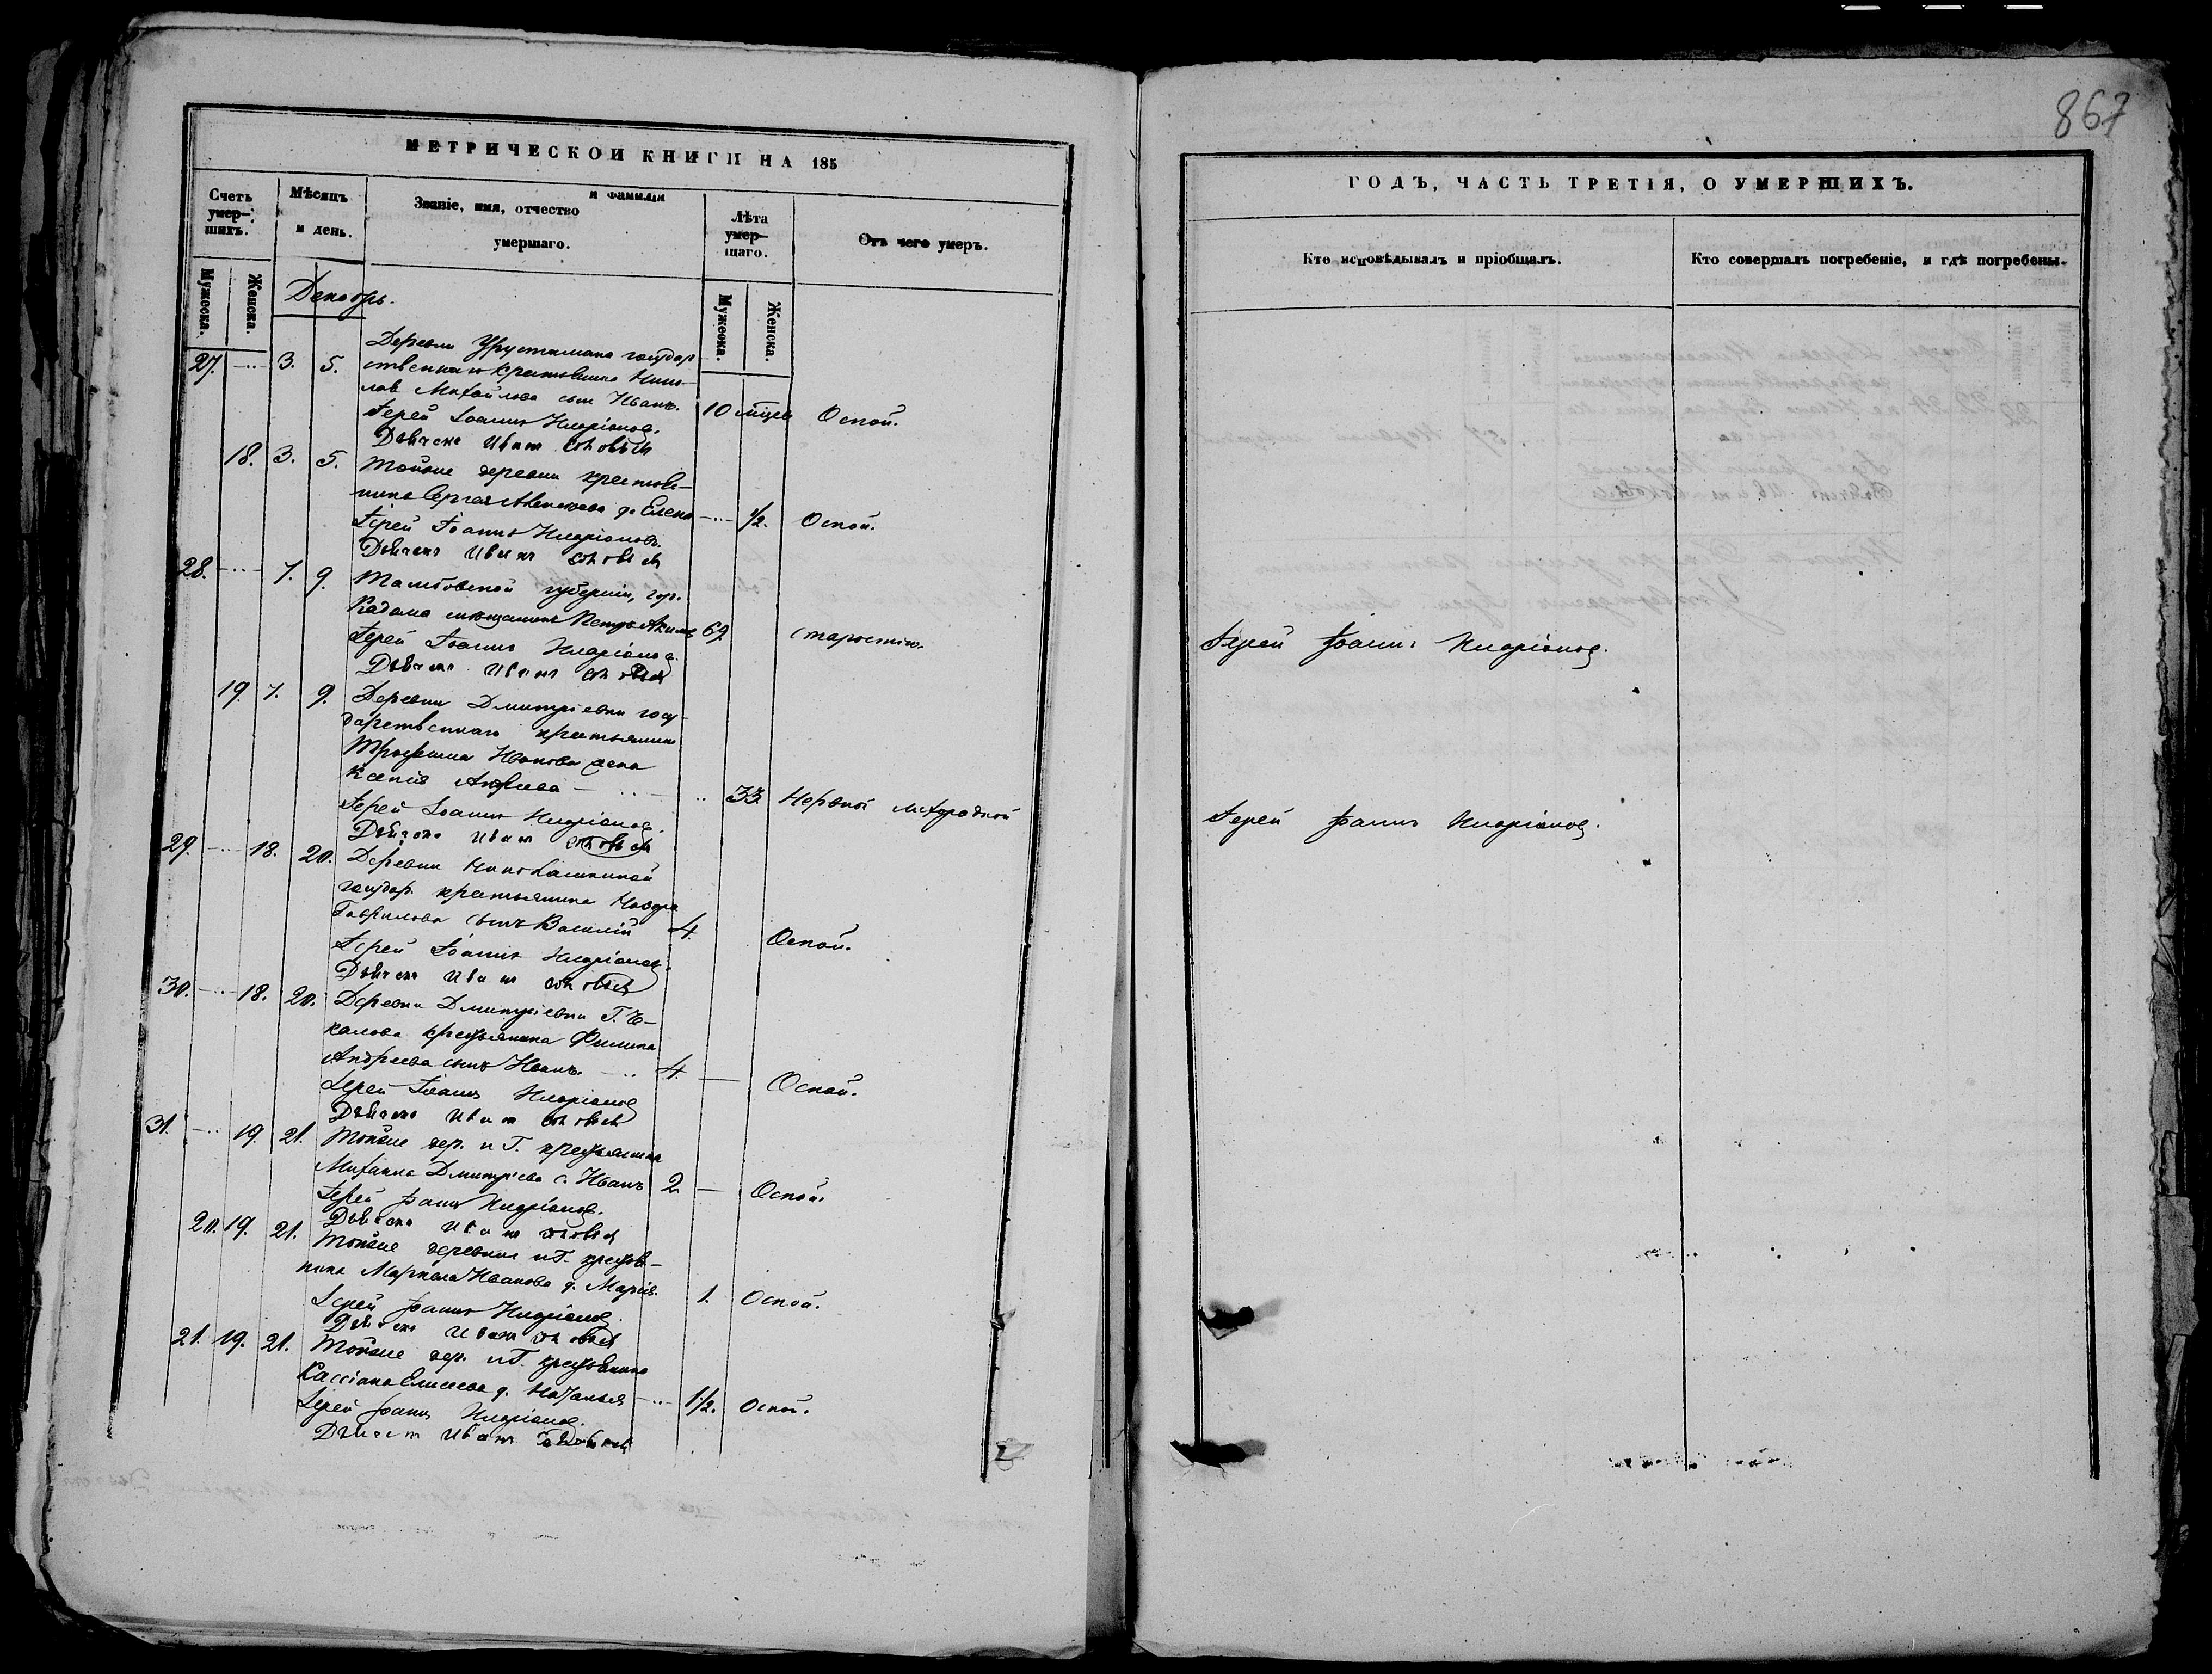 867
МЕТРИЧЕСКОЙ КНИГИ НА 185
Счетъ умер-шихъ.
Мѣсяцъ и день.
Званіе, имя, отчество и фамилія умершаго.
Лѣта умер-шаго.
Отъ чего умеръ.
Мужеска. Женска.
Мужеска. Женска.
Декабрь.
Деревни государ
27. 3. 5. ственнаго крестьянина
Михайлова сынъ Иванъ. 10 мѣцев Оспой.
Іерей Іоаннъ Иларіоновъ.
Дьячекъ Иванъ
18. 3. 5. Тойже деревни крестья-
нина Сергея д. Елена ½. Оспой.
Іерей Іоаннъ Иларіоновъ.
Дьячекъ Иванъ
28. 7. 9. Тамбовской губерніи, гор.
Кадома мѣщанинъ Петръ 69 старостію.
Іерей Іоаннъ Иларіоновъ.
Дьячекъ Иванъ
19. 7. 9. Деревни Дмитріевки госу-
дарственнаго крестьянина
Трофима Иванова жена
Ксенія 33. Нервной
Іерей Іоаннъ Иларіоновъ.
Дьячекъ Иванъ
29. 18. 20. Деревни
государ. крестьянина
Гаврилова сынъ Василій 4. Оспой.
Іерей Іоаннъ Иларіоновъ.
Дьячекъ Иванъ
30. 18. 20. Деревни Дмитріевки Г.
крестьянина Филипа
Андреева сынъ Иванъ. 4. Оспой.
Іерей Іоаннъ Иларіоновъ
Дьячекъ Иванъ
31. 19. 21. Тойже дер. и Г. крестьянина
Михаила Дмитріева с. Иванъ 2 Оспой.
Іерей Іоаннъ Иларіоновъ.
Дьячекъ Иванъ
20. 19. 21. Тойже деревни и Г. крестья-
нина Маркела Иванова д. Марія. 1. Оспой.
Іерей Іоаннъ Иларіоновъ.
Дьячекъ Иванъ
21. 19. 21. Тойже дер. и Г. крестьянина
Кассіана Елисеева д. Наталья 1½. Оспой.
Іерей Іоаннъ Иларіоновъ.
Дьячекъ Иванъ
ГОДЪ, ЧАСТЬ ТРЕТІЯ, О УМЕРШИХЪ.
Кто исповѣдывалъ и пріобщалъ.
Кто совершалъ погребеніе, и гдѣ погребены.
Іерей Іоаннъ Иларіоновъ.
Іерей Іоаннъ Иларіоновъ.